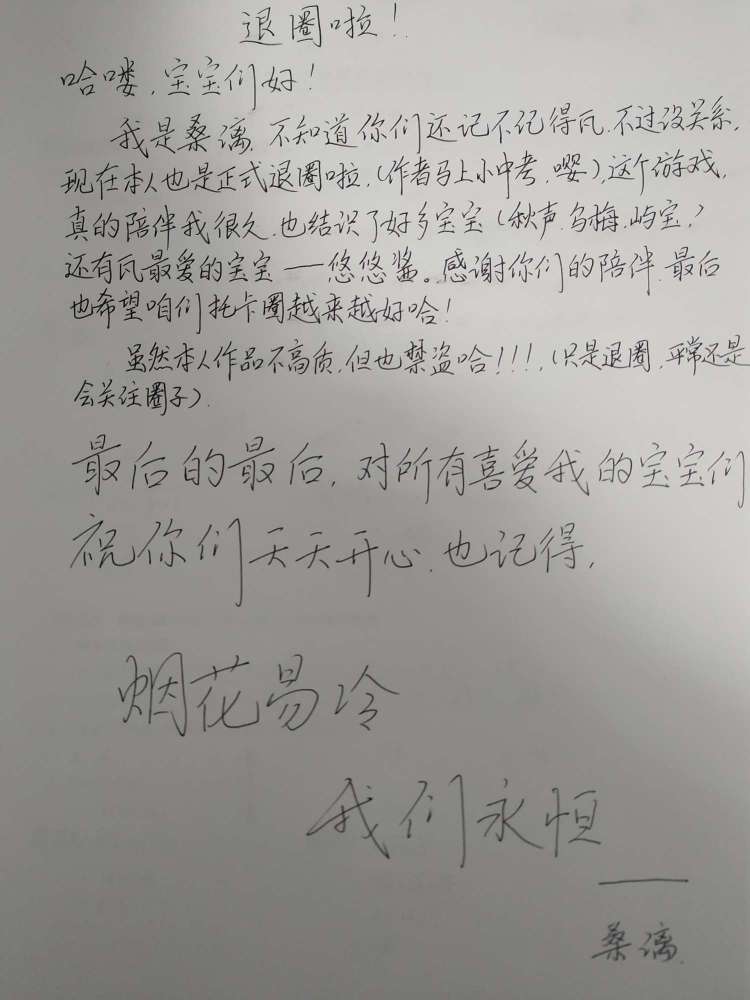 退圈啦！
哈喽，宝宝们好！
我是桑漓，不知道你们还记不记得瓦，不过没关系，
现在本人也是正式退圈啦，(作者马上小中考，嘤)，这个游戏，
真的陪伴我很久，也结识了好多宝宝(秋声，乌梅，屿宝，)
还有瓦最爱的宝宝——悠悠酱。感谢你们的陪伴，最后
也希望咱们托卡圈越来越好哈！
虽然本人作品不高质，但也禁盗哈！！！，(只是退圈，平常还是
会关注圈子)。
最后的最后，对所有喜爱我的宝宝们
祝你们天天开心，也记得，
烟花易冷
我们永恒
——
桑漓